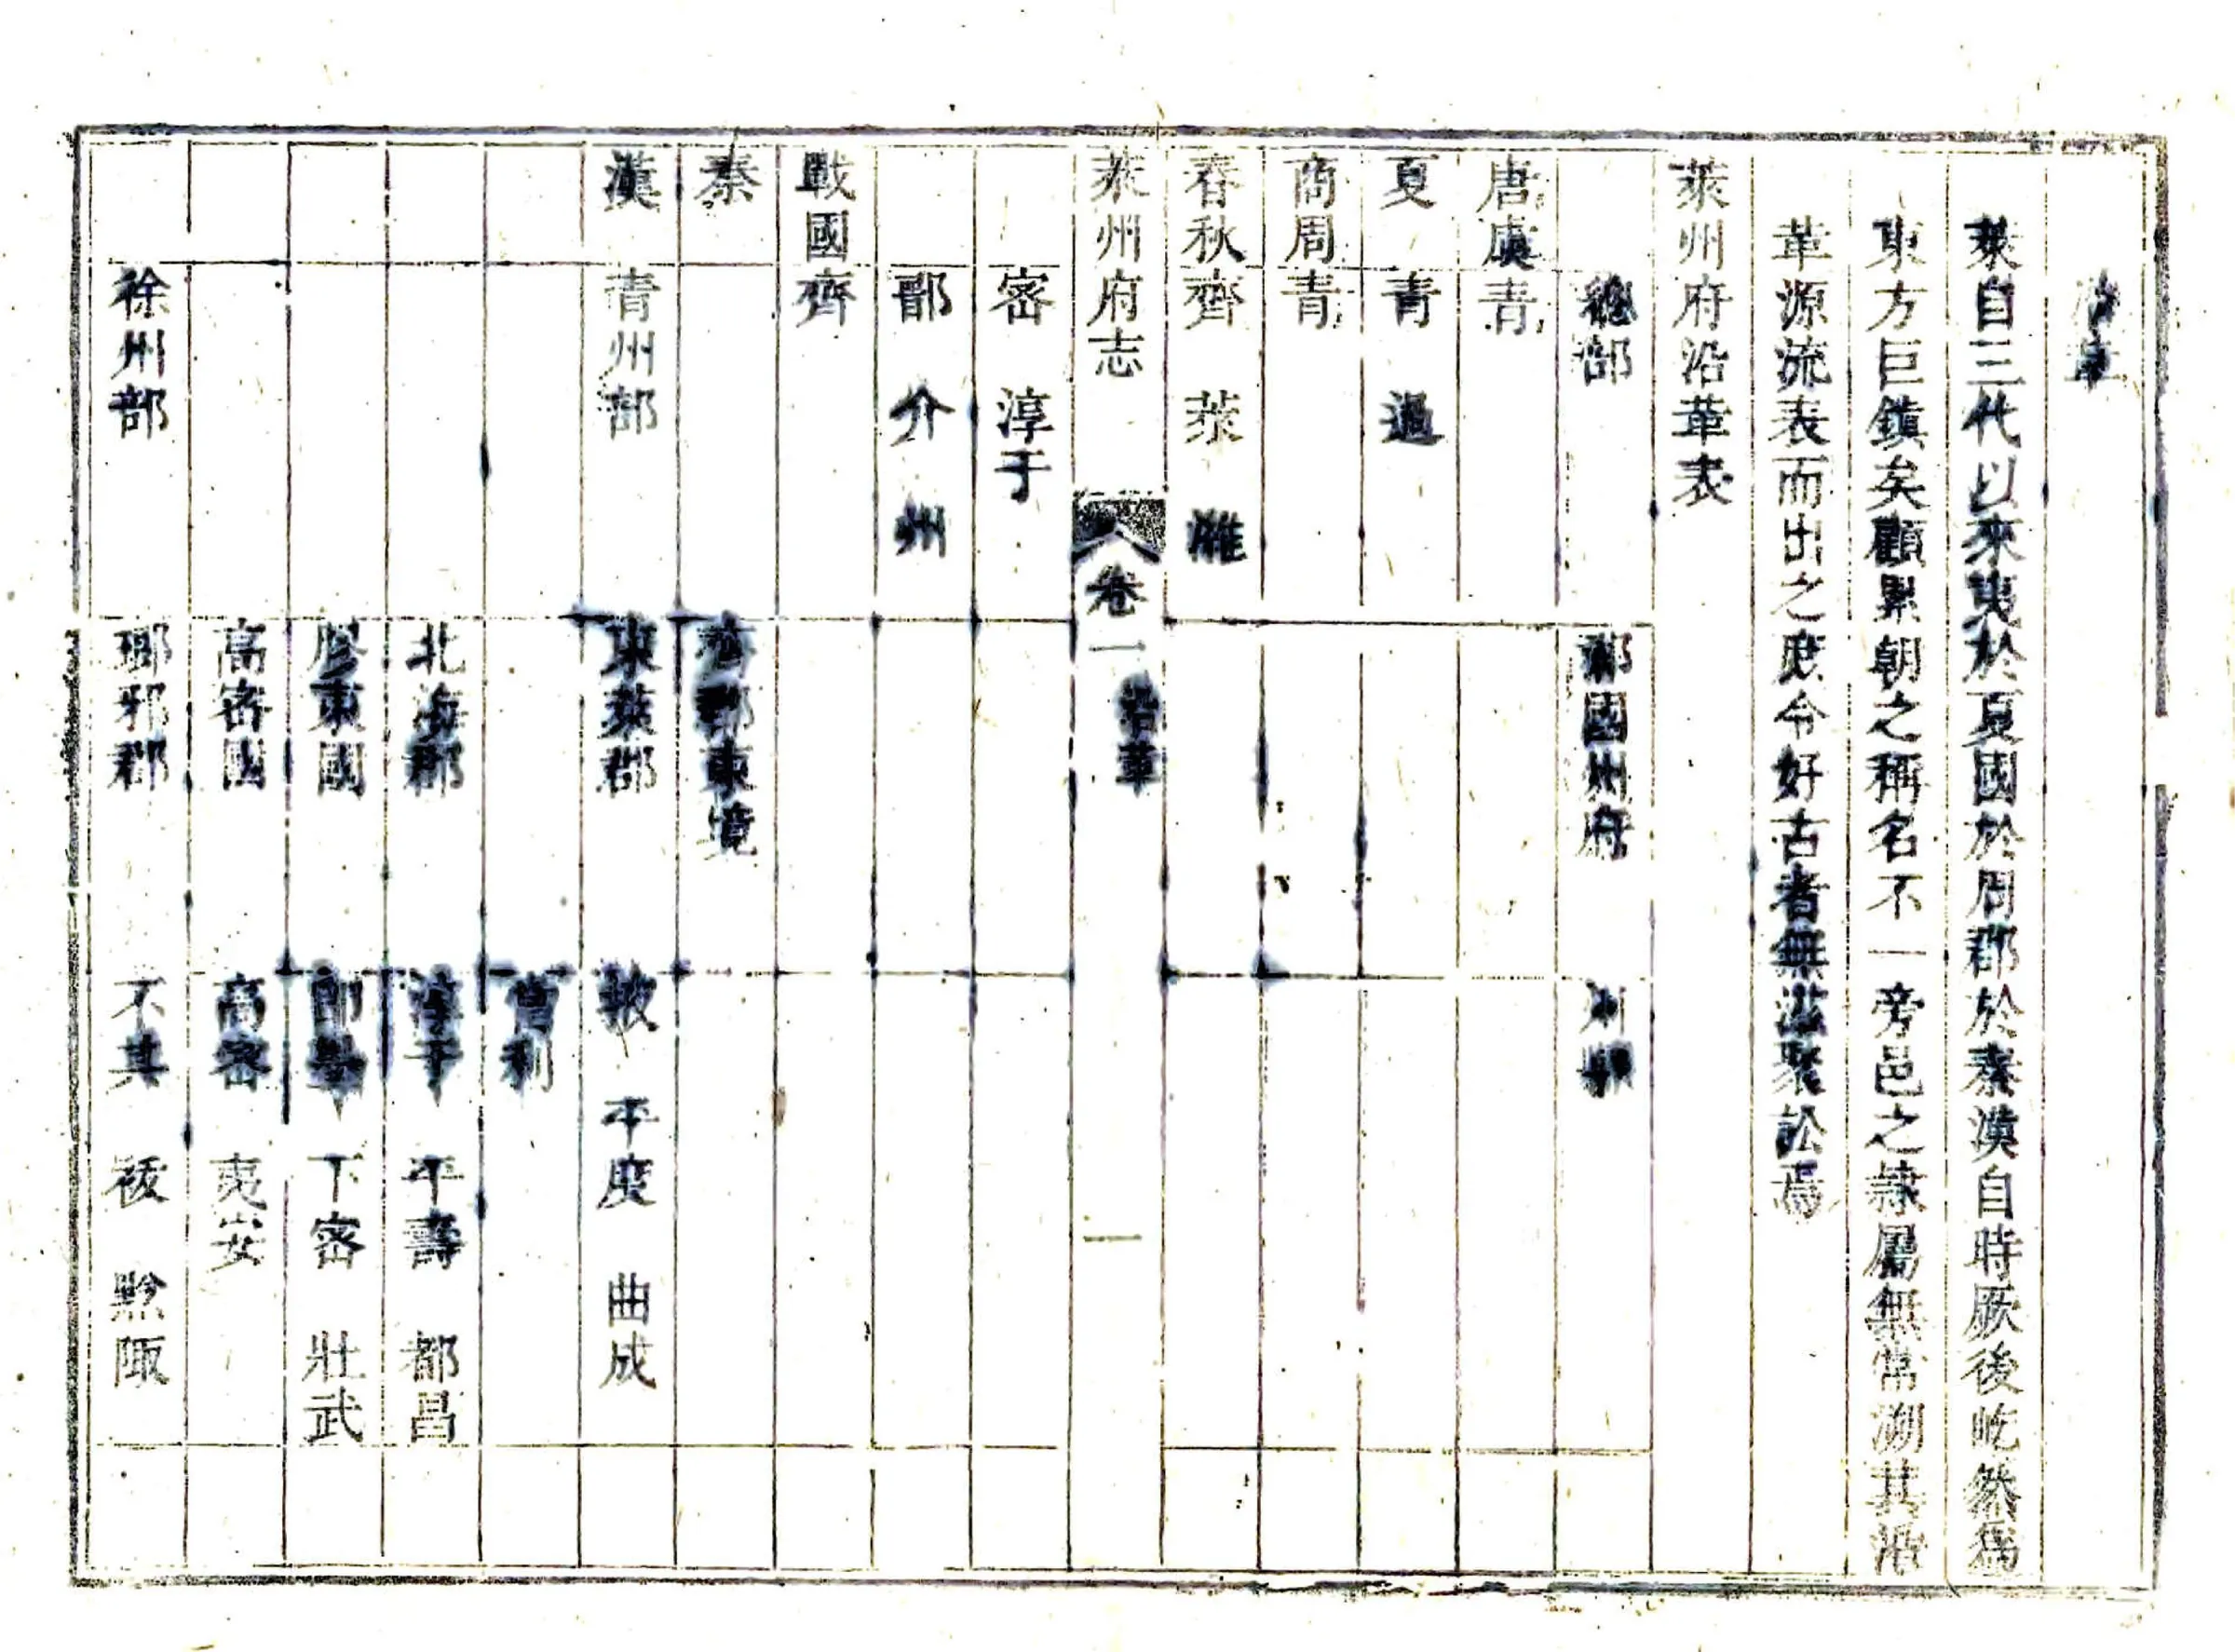 沿革
萊自三代以來夷於夏國於周郡於秦漢自時厥後屹然爲
東方巨鎮矣顧累朝之稱名不一旁邑之隷屬無常溯其沿
革源流表而出之庶令好古者無滋聚訟焉
萊州府沿革表
總部 郡國州府 州縣
唐虞 青
夏 青 過
商周 青
春秋 齊 萊 濰
萊州府志 卷一 沿革 一
密 淳于
郚 介 州
戰國 齊
秦 齊郡東境
漢 青州部 東萊郡 掖 平度 曲成
當利
北海郡 淳于 平壽 都昌
膠東國 即墨 下密 壯武
高密國 高密 夷安
徐州部 琅邪郡 不其 祓 黔陬